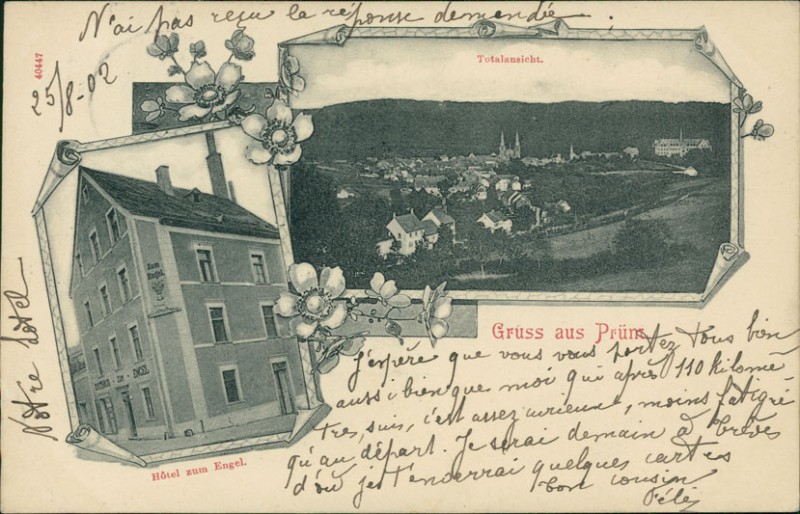 N'ai pas reçu la réponse demendée.
40447
25/8-02
Totalansicht.
Zum
Engel.
ZUM ENGEL
Notre hôtel
Hôtel zum Engel.
Gruss aus Prüm.
J'espère que vous vous portez tous bien
aussi bien que moi qui après 110 kilomè-
tres, suis, c'est assez curieux, moins fatigué
qu'au départ. Je serai demain à Trèves
d'où je t'enverrai quelques cartes
ton cousin